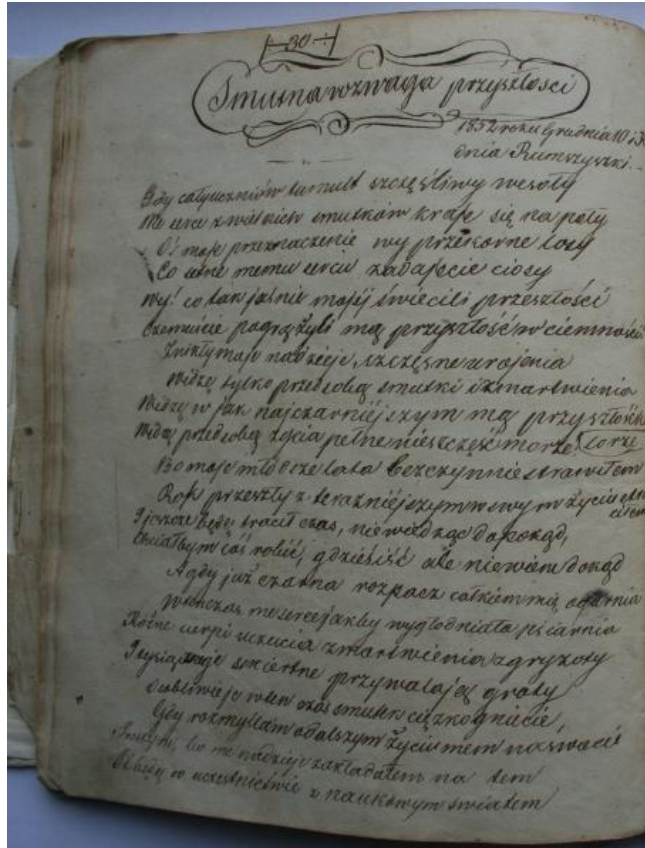 30
Smutna rozwaga przyszłości
1852 roku Grudnia 10 i
dnia Rumszyszki
Gdy całyuczniów tumult szczęśliwy wesoły
Me serce z wielkich smutków kraje się na poły
O! moje przeznaczenie wy przekorne losy
Co setne memu sercu zadajecie ciosy
Wy! co tak jaśnie mojéj świecili przeszłości
Czemuście pogrążyli mą przyszłość w ciemności
Znikły moje nadzieje, szczęsne urojenia
Widzę tylko przed sobą smutki i zmartwienia
Widzę w jak najczarniejszym mą przyszłość
lorze
Widzę przed sobą życia pełne nieszczęść morze
Bo moje młodsze lata bezczynnie strawiłem
Rok przeszły z teraźniejszym w mym życiu
I jeszcze będę tracił czas, niewiedząc dopokąd,
Chciałbym cóś robić, gdzieś iść ale niewiem dokąd
A gdy już czarna rozpacz całkiem mię ogarnia
Wtenczas me serce jakby wygłodniała psiarnia
Różne cierpi uczucia zmartwienia zgryzoty
I tysiączne śmiertne przywalają groty
Osobliwie w ten czas smutek ciężko gniecie,
Gdy rozmyślam o dalszym życiu mem na świecie
bo me nadzieje zakładałem na tem
w uczestnictwie z naukowym światem